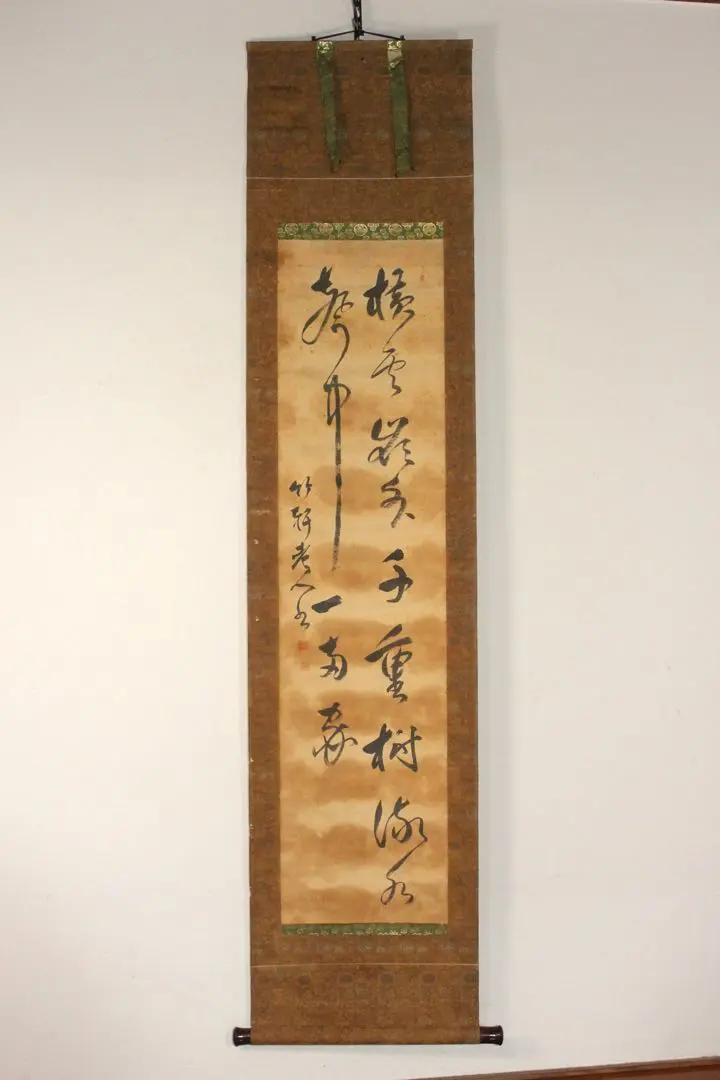 横雲嶺外千重樹流水
声中一両家
竹軒老人書